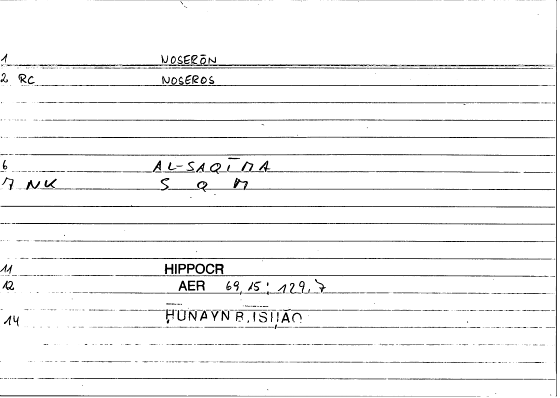 1 NOSERŌN
2 RC NOSEROS
6 AL-SAQĪMA
7 NK S Q M
11 HIPPOCR
12 AER 69,15; 129,7
14 ḤUNAYN B. ISḤĀQ